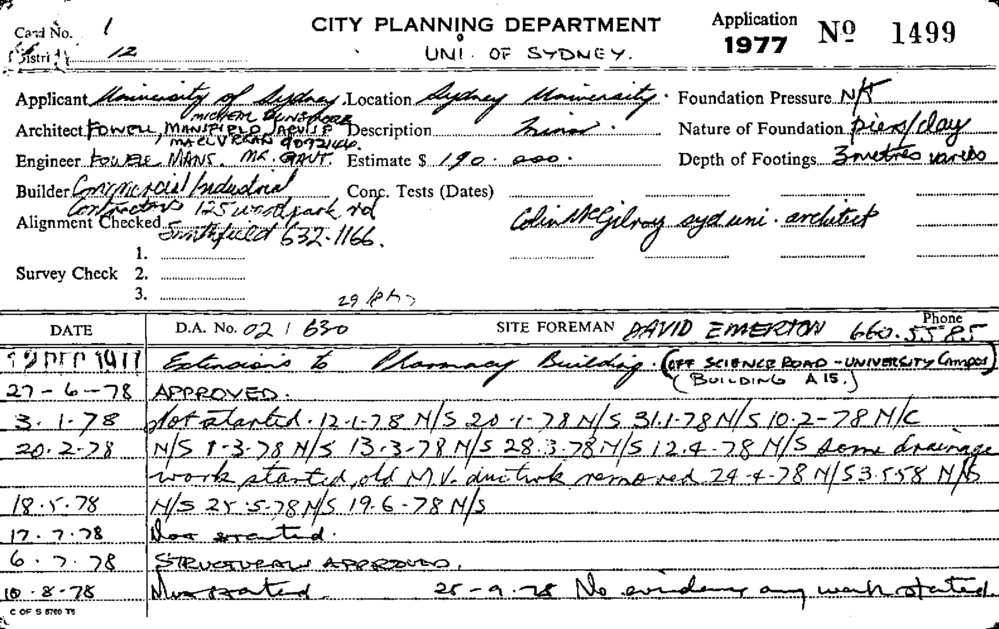 Card No. 1 CITY PLANNING DEPARTMENT Application 1977 No 1499
District 12 UNI. OF SYDNEY.
Applicant University of Sydney. Location Sydney University. Foundation Pressure N/A
Architect FOWELL MANSFIELD JARVIS Description minor Nature of Foundation piers/clay
MACLURCAN
Engineer FOWELL MANS. MR. GANT. Estimate $ 190.000. Depth of Footings 3 metres varies
Builder Commercial/Industrial Conc. Tests (Dates)
Contractors 125 woodpark rd
Alignment Checked Smithfield 632-1166. Colin McGilroy syd uni. architect
1.
Survey Check 2.
3.
DATE D.A. No. 02/630 SITE FOREMAN DAVID EMERTON Phone 660.5585
DEC 1977 Extensions to Pharmacy Building. (OFF SCIENCE ROAD - UNIVERSITY Campus)
(BUILDING A15.)
27-6-78 APPROVED.
3.1.78 Not started. 12-1-78 N/S 20-1-78 N/S 31.1-78 N/S 10.2-78 N/C
20.2-78 N/S 1-3-78 N/S 13-3-78 N/S 28.3-78 N/S 12.4-78 N/S some drainage
work started, old M.V. removed 24-4-78 N/S 3.5.58 N/S
18.5.78 N/S 25-5-78 N/S 19.6-78 N/S
17.7.78 Not started.
6.7.78 STRUCTURALS APPROVED.
10.8.78 Not started. 25-9-78 No evidence any work started.
C OF S 5760 T5